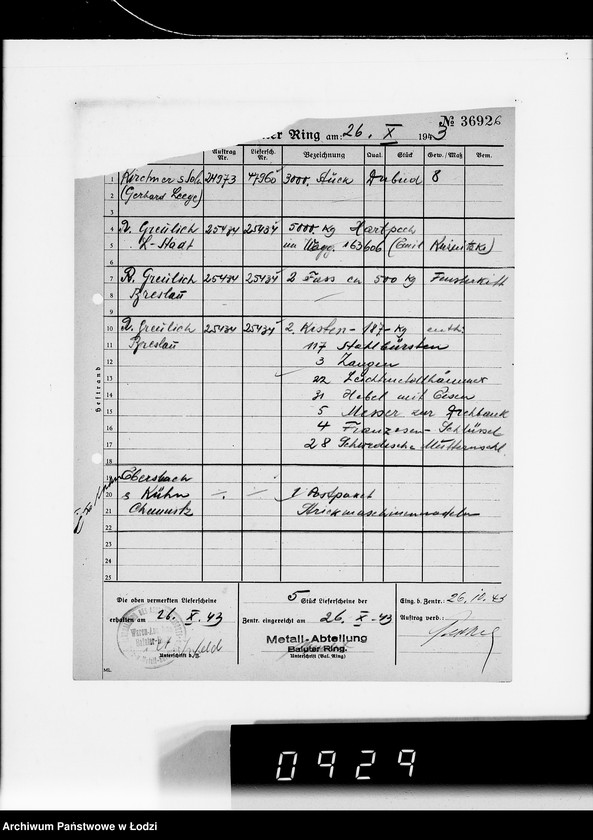 № 36926
Ring am: 26. X 1943
Auftrag Nr. Liefersch. Nr. Bezeichnung Qual. Stück Gew./Maß Bem.
1 24973 3000 Stück 8
2 (Gerhard
3
4 R. Greulich 25434 25434 5000 kg Hartpech
5 L-Stadt im Wagg. 163606 (Emil
6
7 R. Greulich 25434 25434 2 Fass ca 500 kg Fensterkitt
8 Breslau
9
10 R. Greulich 25434 25434 2 Kisten - 187 - kg enth:
11 Breslau 117 Stahlbürsten
12 3 Zangen
13 22 Leichtmetallhämmer
14 31 Hobel mit Eisen
15 5 Messer zur Drehbank
16 4 Franzosen-Schlüssel
17 28 Schwedische
18
19 Ebersbach
20 & Kühn 1 Postpaket
21 Chemnitz Strickmaschinennadeln
22
23
24
25
Heftrand
Die oben vermerkten Lieferscheine
erhalten am 26. X. 43
Unterschrift
ML.
5 Stück Lieferscheine der
Zentr. eingereicht am 26. X. 43
Metall-Abteilung
Baluter Ring.
Unterschrift (Bal. Ring)
Eing. b. Zentr.:
Auftrag verb.:
0929
Archiwum Państwowe w Łodzi